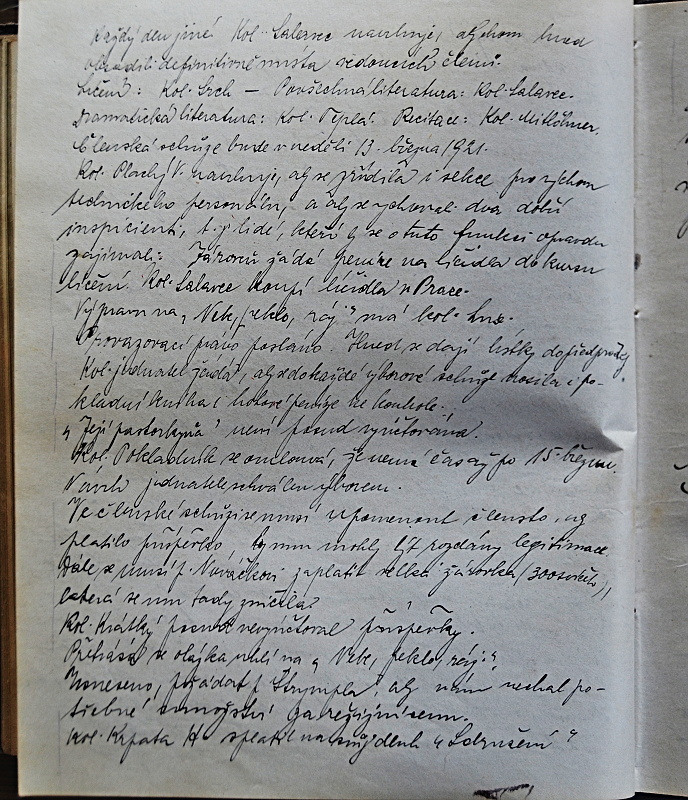 Každý den jiné. Kol. Salavec navrhuje, abychom hned
obsadili definitivně místa vedoucích členů.
Líčení: Kol. Srch — Povšechná literatura: Kol. Salavec.
Dramatická literatura: Kol. Teplá. Recitace: Kol. Mitlöhner.
Členská schůze bude v neděli 13. března 1921.
Kol. Plachý V. navrhuje, aby se zřídila i sekce pro výchovu
technického personálu, a aby se vychovali dva dobří
inspicienti, t.j. lidé, kteří by se o tuto funkci opravdu
zajímali. žádá peníze na líčidla do kursu
líčení. Kol. Salavec koupí líčidla v Praze.
Výpravu na „Nebe, peklo, ráj“ má kol.
Provozovací právo posláno. Ihned se dají lístky do předprodeje.
Kol. jednatel žádá, aby se do každé výborové schůze nosila i po-
kladní kniha i hotové peníze ke kontrole.
„Její pastorkyňa“ není posud vyúčtována.
Kol. Pokladník se omlouvá, že nemá čas až po 15. březnu.
Návrh jednatele schválen výborem.
Ve členské schůzi se musí upomenout členstvo, aby
platilo příspěvky, by mu mohly být rozdány legitimace.
Dále se musí p. Nováčkovi zaplatit velká žárovka (300 svíček),
která se mu tady zničila.
Kol. Krátký posud nevyúčtoval příspěvky.
Přetřásá se otázka uhlí na „Nebe, peklo, ráj“,
Usneseno, požádat p. Štrympla, aby nám nechal po-
třebné množství za režijní cenu.
Kol. Kopata H. splatil na „Sdružení“